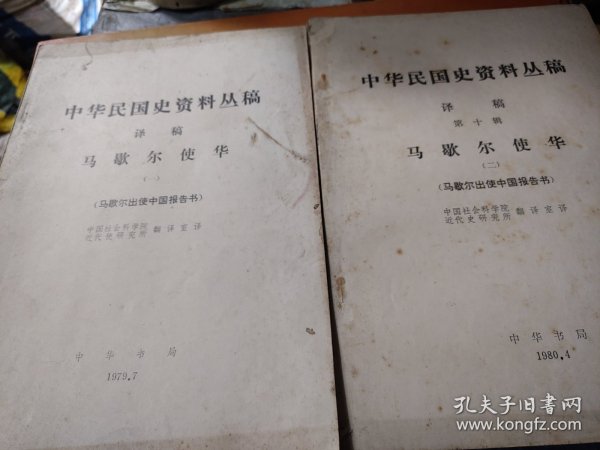 中华民国史资料丛稿
译稿
马歇尔使华
(一)
(马歇尔出使中国报告书)
中国社会科学院
近代史研究所 翻译室译
中华书局
1979.7
中华民国史资料丛稿
译稿
第十辑
马歇尔使华
(二)
(马歇尔出使中国报告书)
中国社会科学院
近代史研究所 翻译室译
中华书局
1980.4
孔夫子旧书网
www.kongfz.com